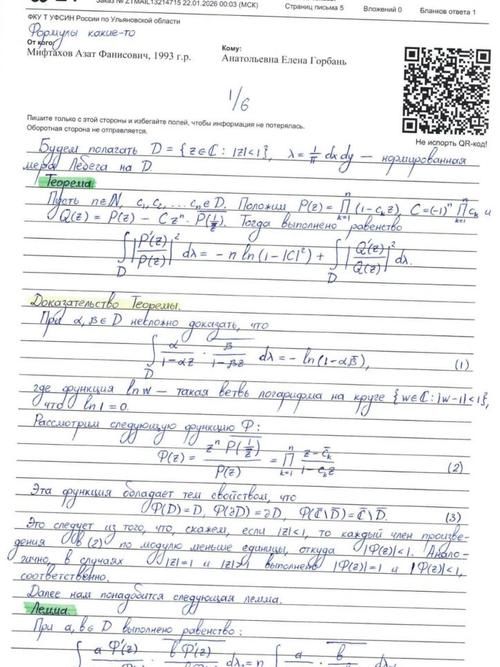 Заказ № ZTMAIL13214715 22.01.2026 00:03 (МСК)
Страниц письма 5 Вложений 0 Бланков ответа 1
ФКУ Т УФСИН России по Ульяновской области
Формулы какие-то
От кого:
Мифтахов Азат Фанисович, 1993 г.р.
Кому:
Анатольевна Елена Горбань
1/6
Пишите только с этой стороны и избегайте полей, чтобы информация не потерялась.
Оборотная сторона не отправляется.
Не испорть QR-код!
Будем полагать D = {z∈ℂ: |z|<1}, λ = 1/π dxdy — нормированная
мера Лебега на D.
Теорема
Пусть n∈ℕ, c₁, c₂, ... cₙ∈D. Положим P(z) = ∏ₖ₌₁ⁿ (1-cₖz), C=(-1)ⁿ ∏ₖ₌₁ⁿ cₖ и
Q(z) = P(z) - C zⁿ · P̅(̅1̅/̅z̅)̅. Тогда выполнено равенство
∫_D |P'(z)/P(z)|² dλ = - n ln(1-|C|²) + ∫_D |Q'(z)/Q(z)|² dλ.
Доказательство Теоремы.
При α, β ∈ D несложно доказать, что
∫_D α/(1-αz) · β̅/(1-β̅z̅) dλ = - ln(1-αβ̅), (1)
где функция ln w — такая ветвь логарифма на круге {w∈ℂ: |w-1|<1},
что ln 1 = 0.
Рассмотрим следующую функцию Φ:
Φ(z) = zⁿ P(1/z̅)̅ / P(z) = ∏ₖ₌₁ⁿ (z-c̅ₖ)/(1-cₖz) (2)
Эта функция обладает тем свойством, что
Φ(D) = D, Φ(∂D) = ∂D, Φ(ℂ̅\D̅) = ℂ̅\D̅. (3)
Это следует из того, что, скажем, если |z|<1, то каждый член произве-
дения в (2) по модулю меньше единицы, откуда |Φ(z)|<1. Анало-
гично, в случаях |z|=1 и |z|>1 выполнено |Φ(z)|=1 и |Φ(z)|<1,
соответственно.
Далее нам понадобится следующая лемма.
Лемма
При a, b ∈ D выполнено равенство: